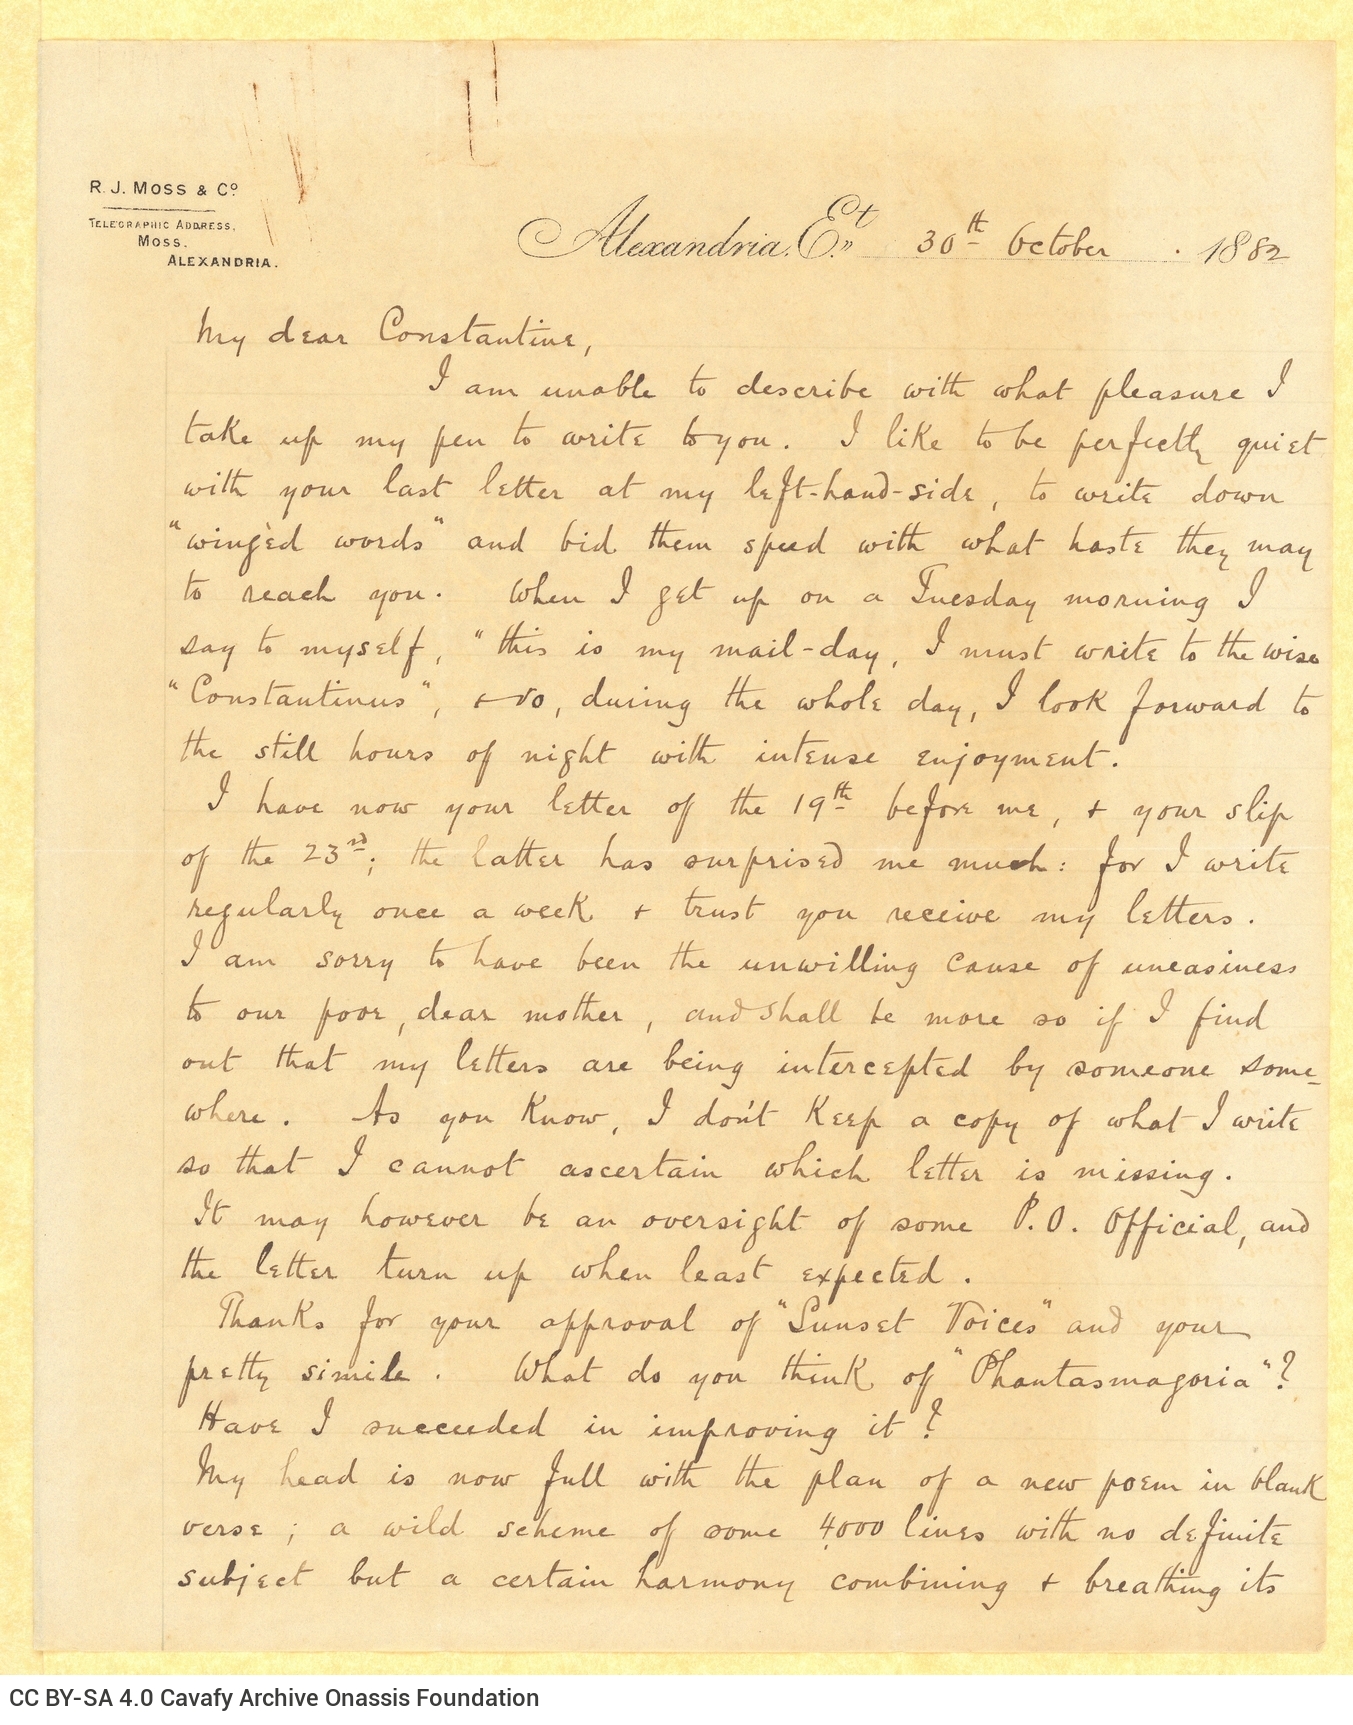 R. J. MOSS & Cº
TELEGRAPHIC ADDRESS,
MOSS.
ALEXANDRIA.
Alexandria. Eᵗ.,, 30th October . 1882
My dear Constantine,
I am unable to describe with what pleasure I
take up my pen to write to you. I like to be perfectly quiet
with your last letter at my left-hand-side, to write down
"wingèd words" and bid them speed with what haste they may
to reach you. When I get up on a Tuesday morning I
say to myself, "this is my mail-day, I must write to the wise
"Constantinus", & so, during the whole day, I look forward to
the still hours of night with intense enjoyment.
I have now your letter of the 19th before me, & your slip
of the 23rd; the latter has surprised me much: for I write
regularly once a week & trust you receive my letters.
I am sorry to have been the unwilling cause of uneasiness
to our poor, dear mother, and shall be more so if I find
out that my letters are being intercepted by someone some-
where. As you know, I don't keep a copy of what I write
so that I cannot ascertain which letter is missing.
It may however be an oversight of some P.O. Official, and
the letter turn up when least expected.
Thanks for your approval of "Sunset Voices" and your
pretty simile. What do you think of "Phantasmagoria"?
Have I succeeded in improving it?
My head is now full with the plan of a new poem in blank
verse; a wild scheme of some 4000 lines with no definite
subject but a certain harmony combining & breathing its
CC BY-SA 4.0 Cavafy Archive Onassis Foundation